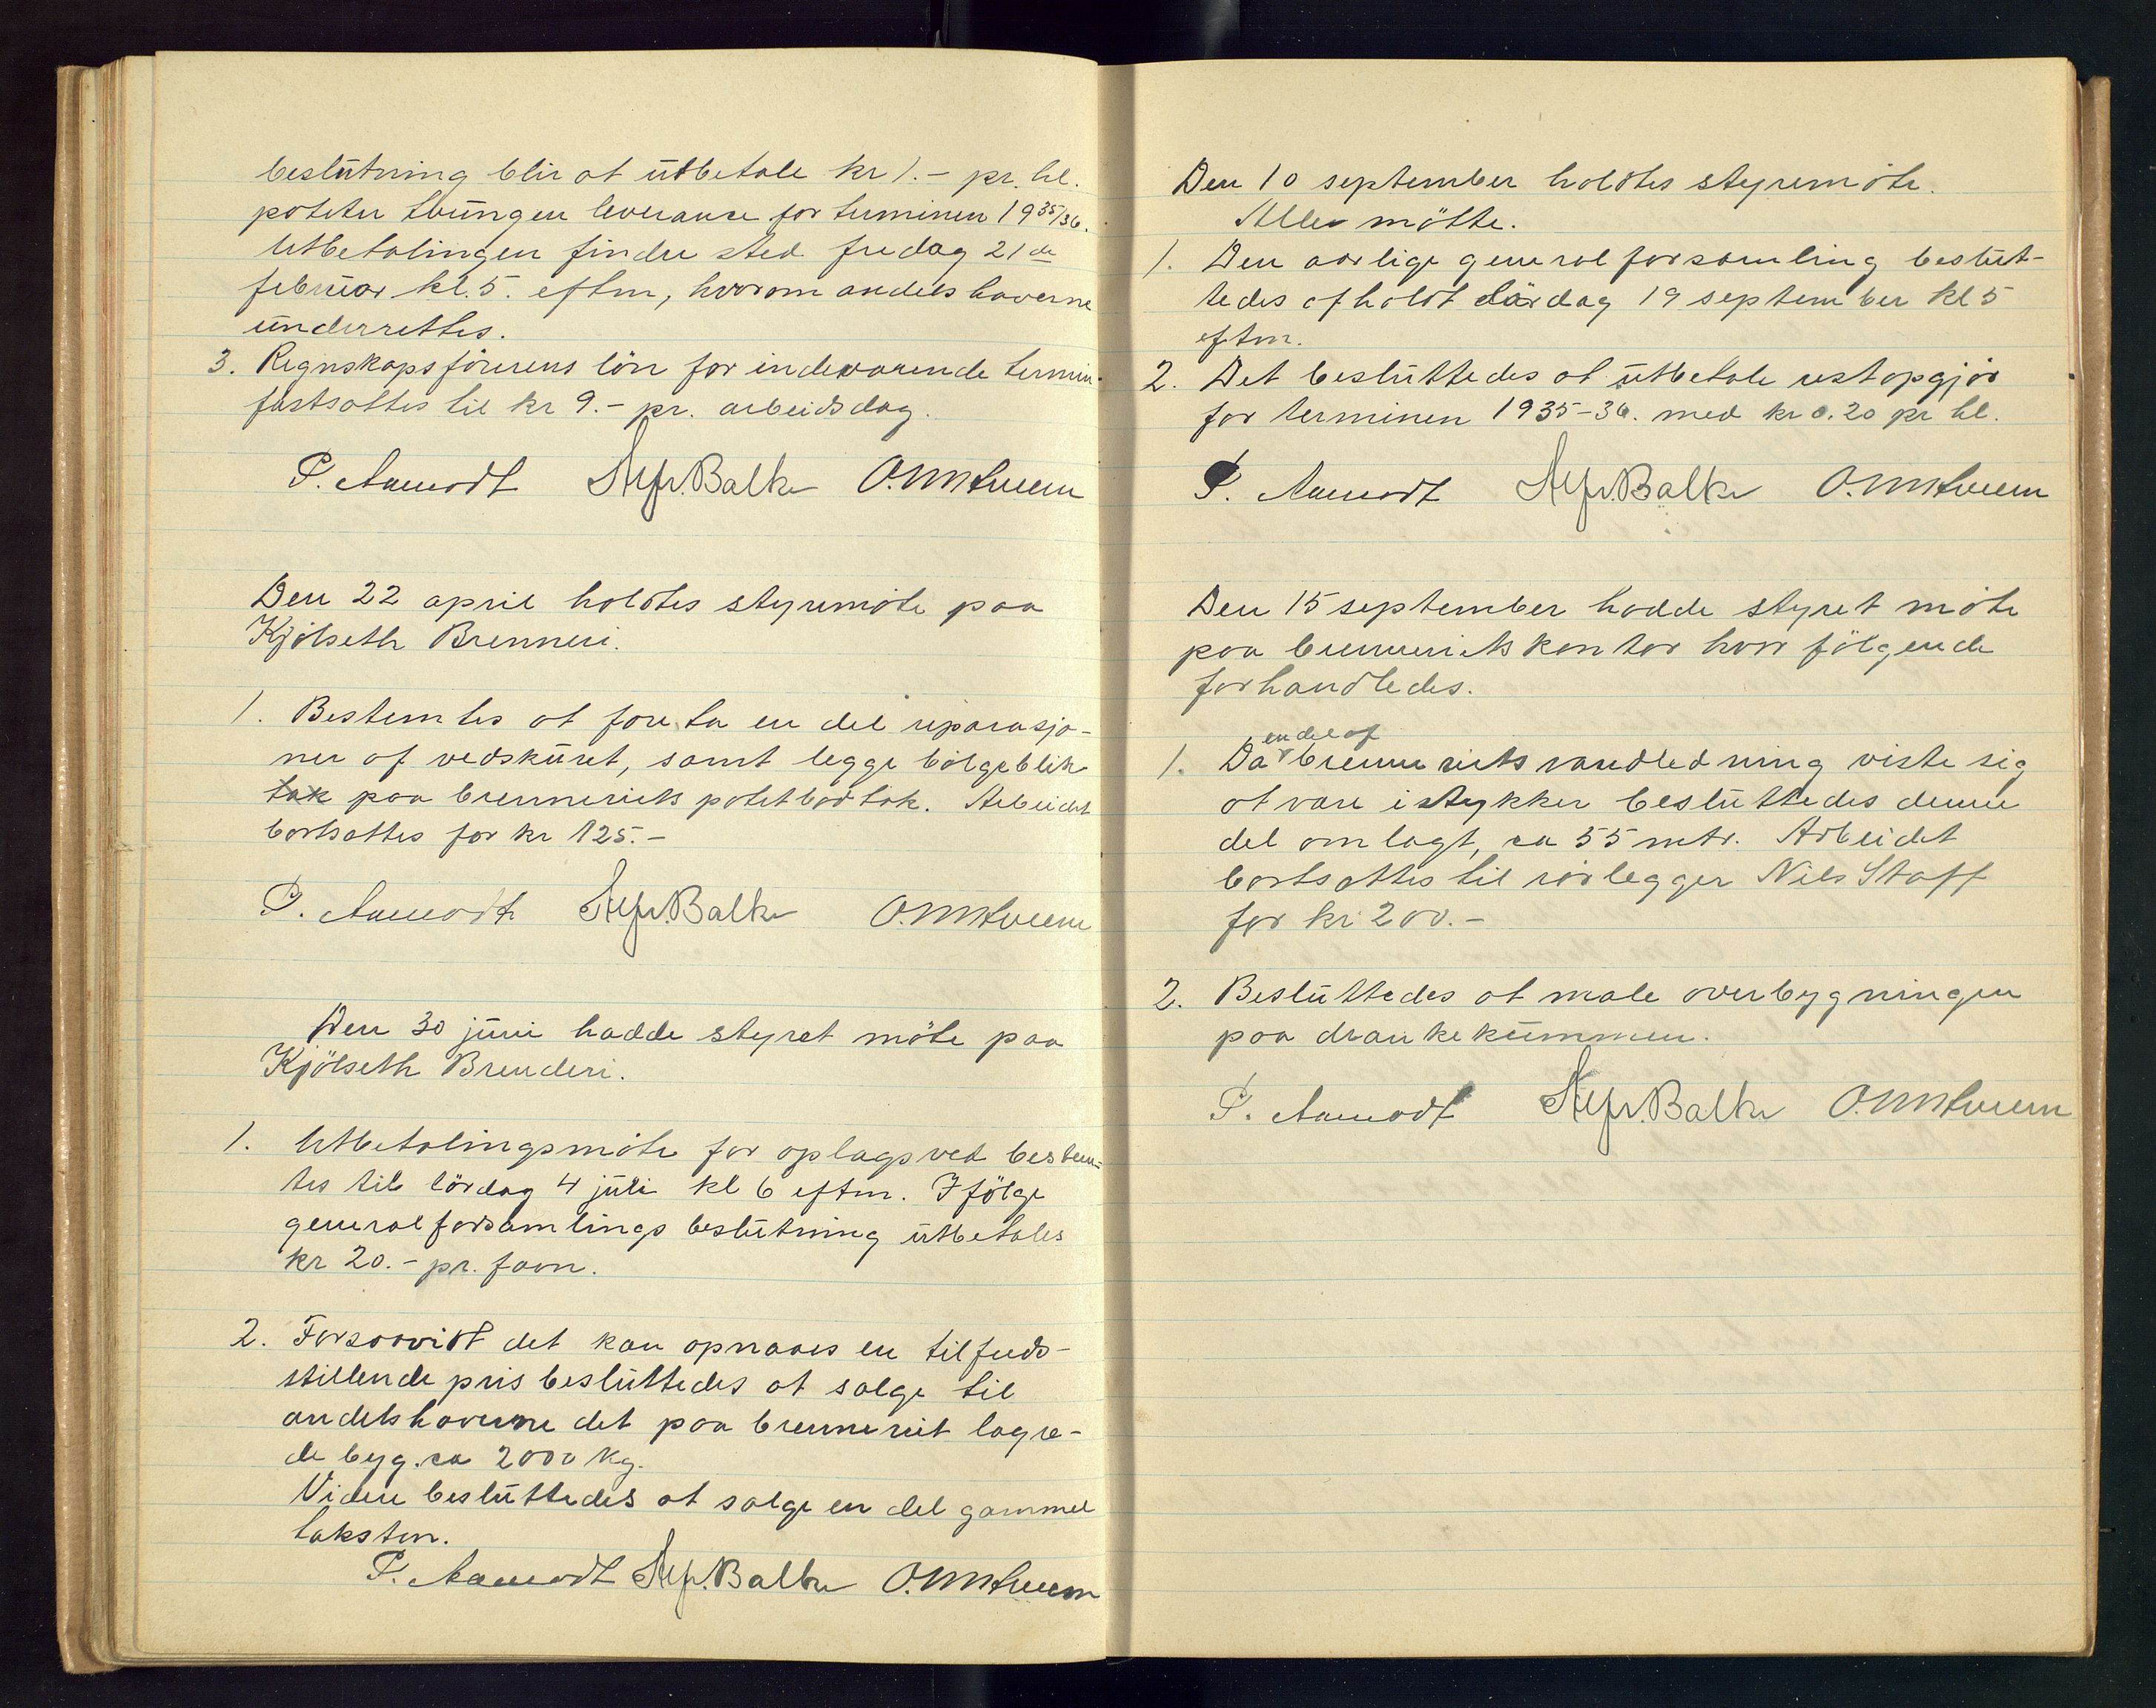 beslutning blir at utbetale kr 1.- pr. hl.
poteter tvungen leveranse for terminen 1935/36.
Utbetalingen finder sted fredag 21de
februar kl. 5. eftm, hvorom andelshaverne
underrettes.
3. Regnskapsförerens lön for indeværende termin
fastsattes til kr 9.- pr. arbeidsdag.
P. Aamodt Alfr. Balke
Den 22 april holdtes styremöte paa
Kjölseth Brenneri.
1. Bestemtes at foreta en del reparasjo-
ner af vedskuret, samt legge bölgeblik
tak paa brenneriets potetbodtak. Arbeidet
bortsattes for kr 125.-
P. Aamodt Alfr. Balke
Den 30 juni hadde styret möte paa
Kjölseth Brenderi.
1. Utbetalingsmöte for oplagsved bestem-
tes til lördag 4 juli kl 6 eftm. Ifölge
generalforsamlings beslutning utbetales
kr 20.- pr. favn.
2. Forsaavidt det kan opnaaes en tilfreds-
stillende pris besluttedes at salge til
andelshaverne det paa brenneriet lagre-
de byg. ca 2000 kg.
Videre besluttedes at salge en del gammel
taksten.
P. Aamodt Alfr. Balke
Den 10 september holdtes styremöte.
Alle mötte.
1. Den aarlige generalforsamling beslut-
tedes afholdt lördag 19 september kl 5
eftm.
2. Det besluttedes at utbetale restopgjör
for terminen 1935-36. med kr 0.20 pr hl.
P. Aamodt Alfr. Balke
Den 15 september hadde styret möte
paa brenneriets kontor hvor fölgende
forhandledes.
en del af
1. Da brenneriets vandledning viste sig
at være istykker besluttedes denne
del omlagt, ca 55 mtr. Arbeidet
bortsattes til rörlegger Nils Staff
for kr 200.-
2. Besluttedes at male overbygningen
paa drankekummen.
P. Aamodt Alfr. Balke